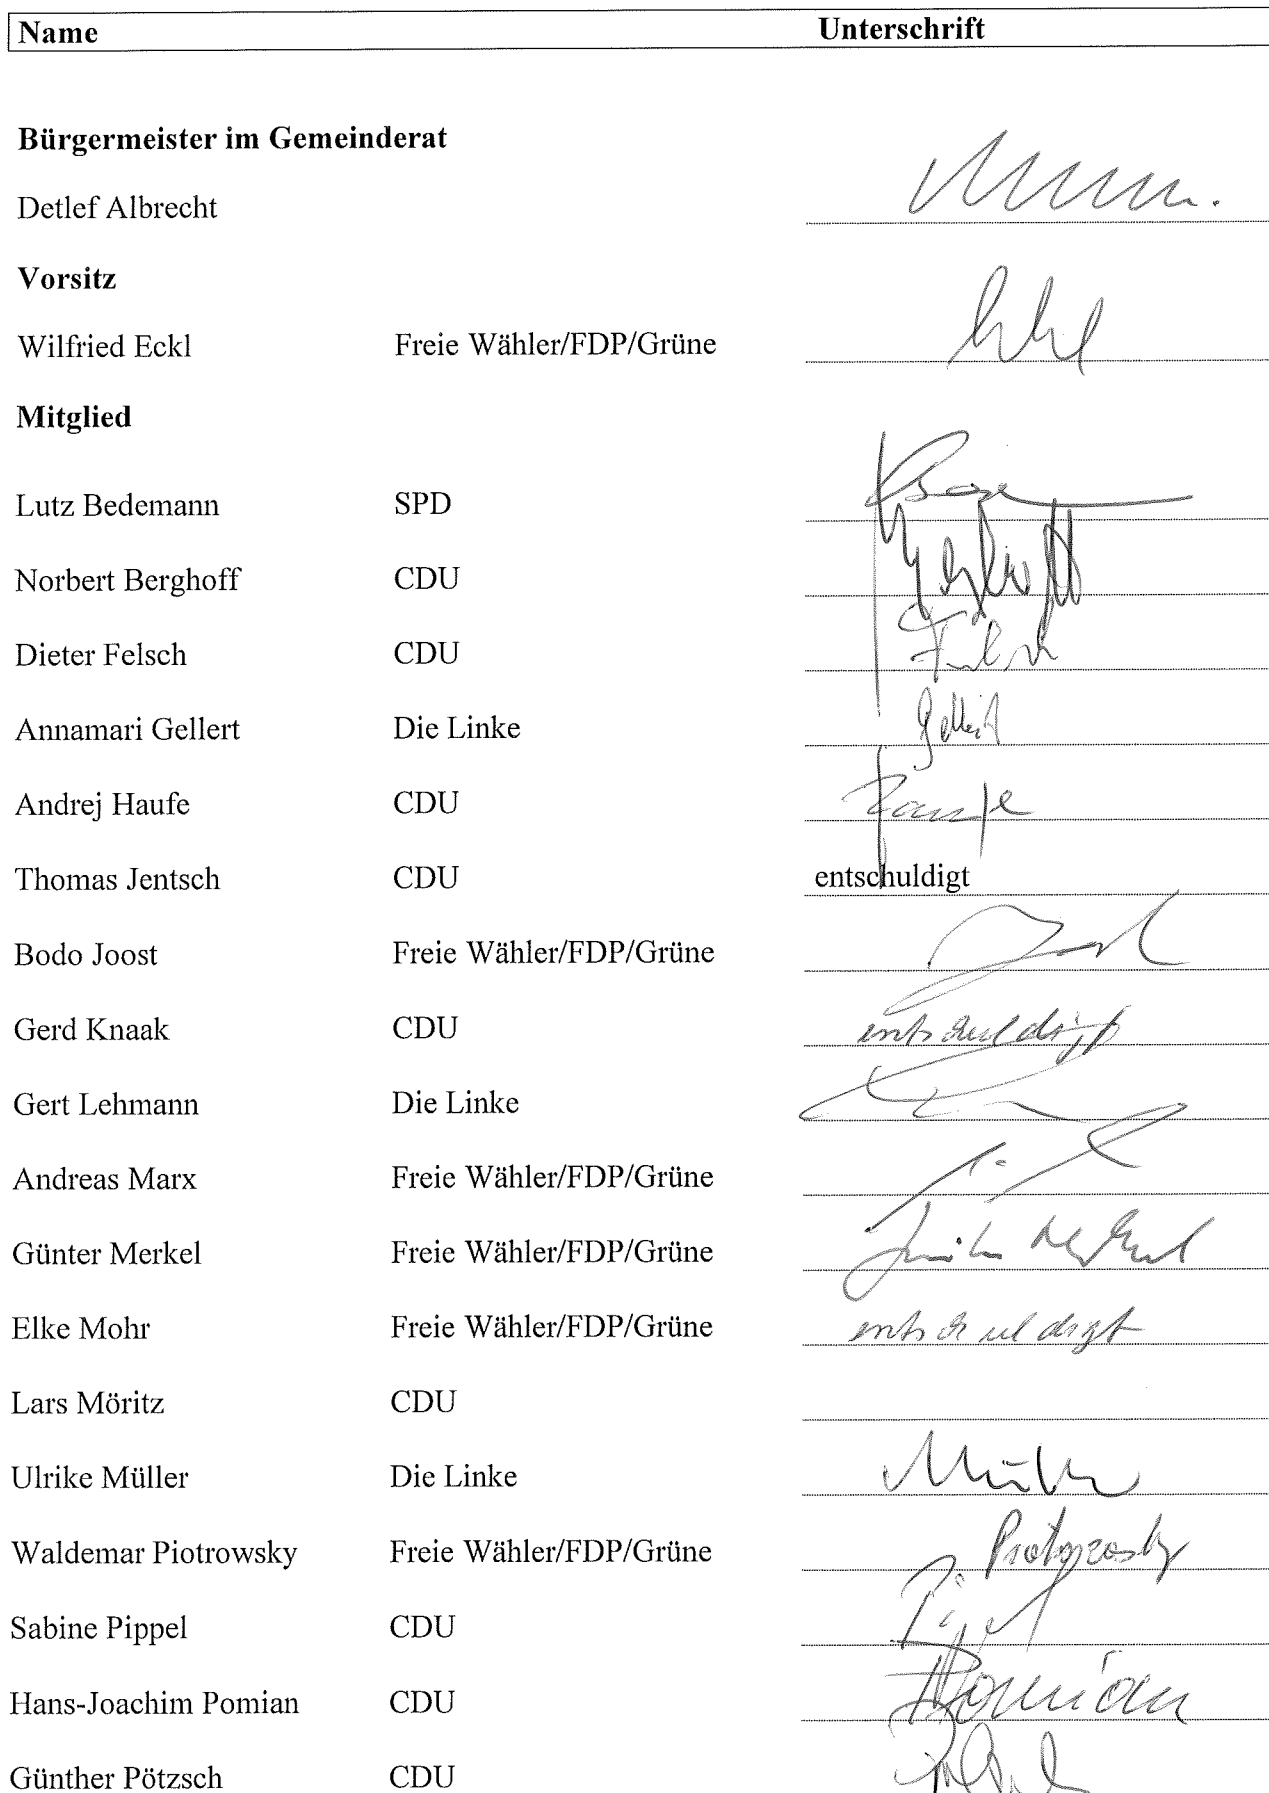 Name Unterschrift
Bürgermeister im Gemeinderat
Detlef Albrecht
Vorsitz
Wilfried Eckl Freie Wähler/FDP/Grüne
Mitglied
Lutz Bedemann SPD
Norbert Berghoff CDU Berghoff
Dieter Felsch CDU Felsch
Annamari Gellert Die Linke Gellert
Andrej Haufe CDU Haufe
Thomas Jentsch CDU entschuldigt
Bodo Joost Freie Wähler/FDP/Grüne
Gerd Knaak CDU entschuldigt
Gert Lehmann Die Linke
Andreas Marx Freie Wähler/FDP/Grüne
Günter Merkel Freie Wähler/FDP/Grüne Günter Merkel
Elke Mohr Freie Wähler/FDP/Grüne entschuldigt
Lars Möritz CDU
Ulrike Müller Die Linke Müller
Waldemar Piotrowsky Freie Wähler/FDP/Grüne Piotrowsky
Sabine Pippel CDU
Hans-Joachim Pomian CDU Pomian
Günther Pötzsch CDU